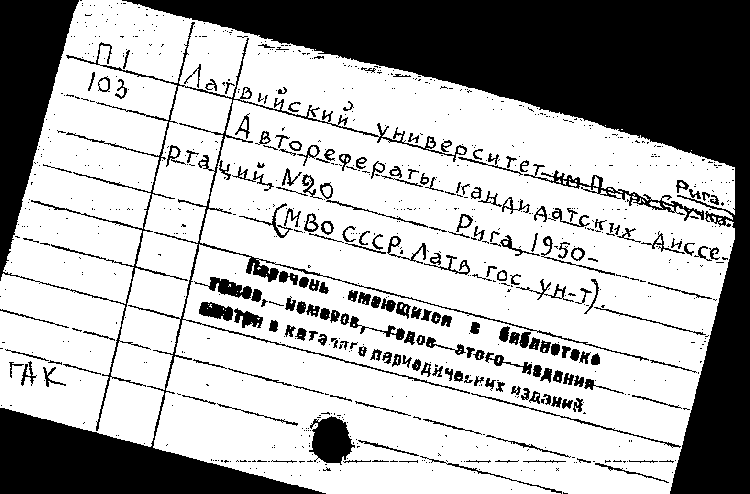 П1
103
Латвийский университет им. Петра Стучки. Рига.
Авторефераты кандидатских диссе-
ртаций, №20 Рига, 1950-
(МВО СССР. Латв. гос. ун-т).
Перечень имеющихся в библиотеке
томов, номеров, годов этого издания
смотри в каталоге периодических изданий.
ГАК